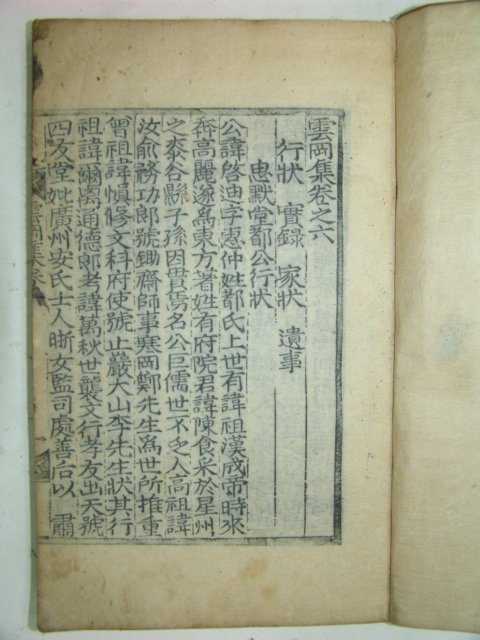 雲岡集卷之六
行狀 實錄 家狀 遺事
忠默堂都公行狀
公諱啓迪字惠仲姓都氏上世有諱祖漢成帝時來
奔高麗遂爲東方著姓有府院君諱陳食采於星州
之柒谷縣子孫因貫焉名公巨儒世不乏人高祖諱
汝兪務功郎號鋤齋師事寒岡鄭先生爲世所推重
曾祖諱愼修文科府使號止巖大山李先生狀其行
祖諱爾卨通德郎考諱萬秋世襲文行孝友出天號
四友堂妣廣州安氏士人晣女監司處善后以 肅